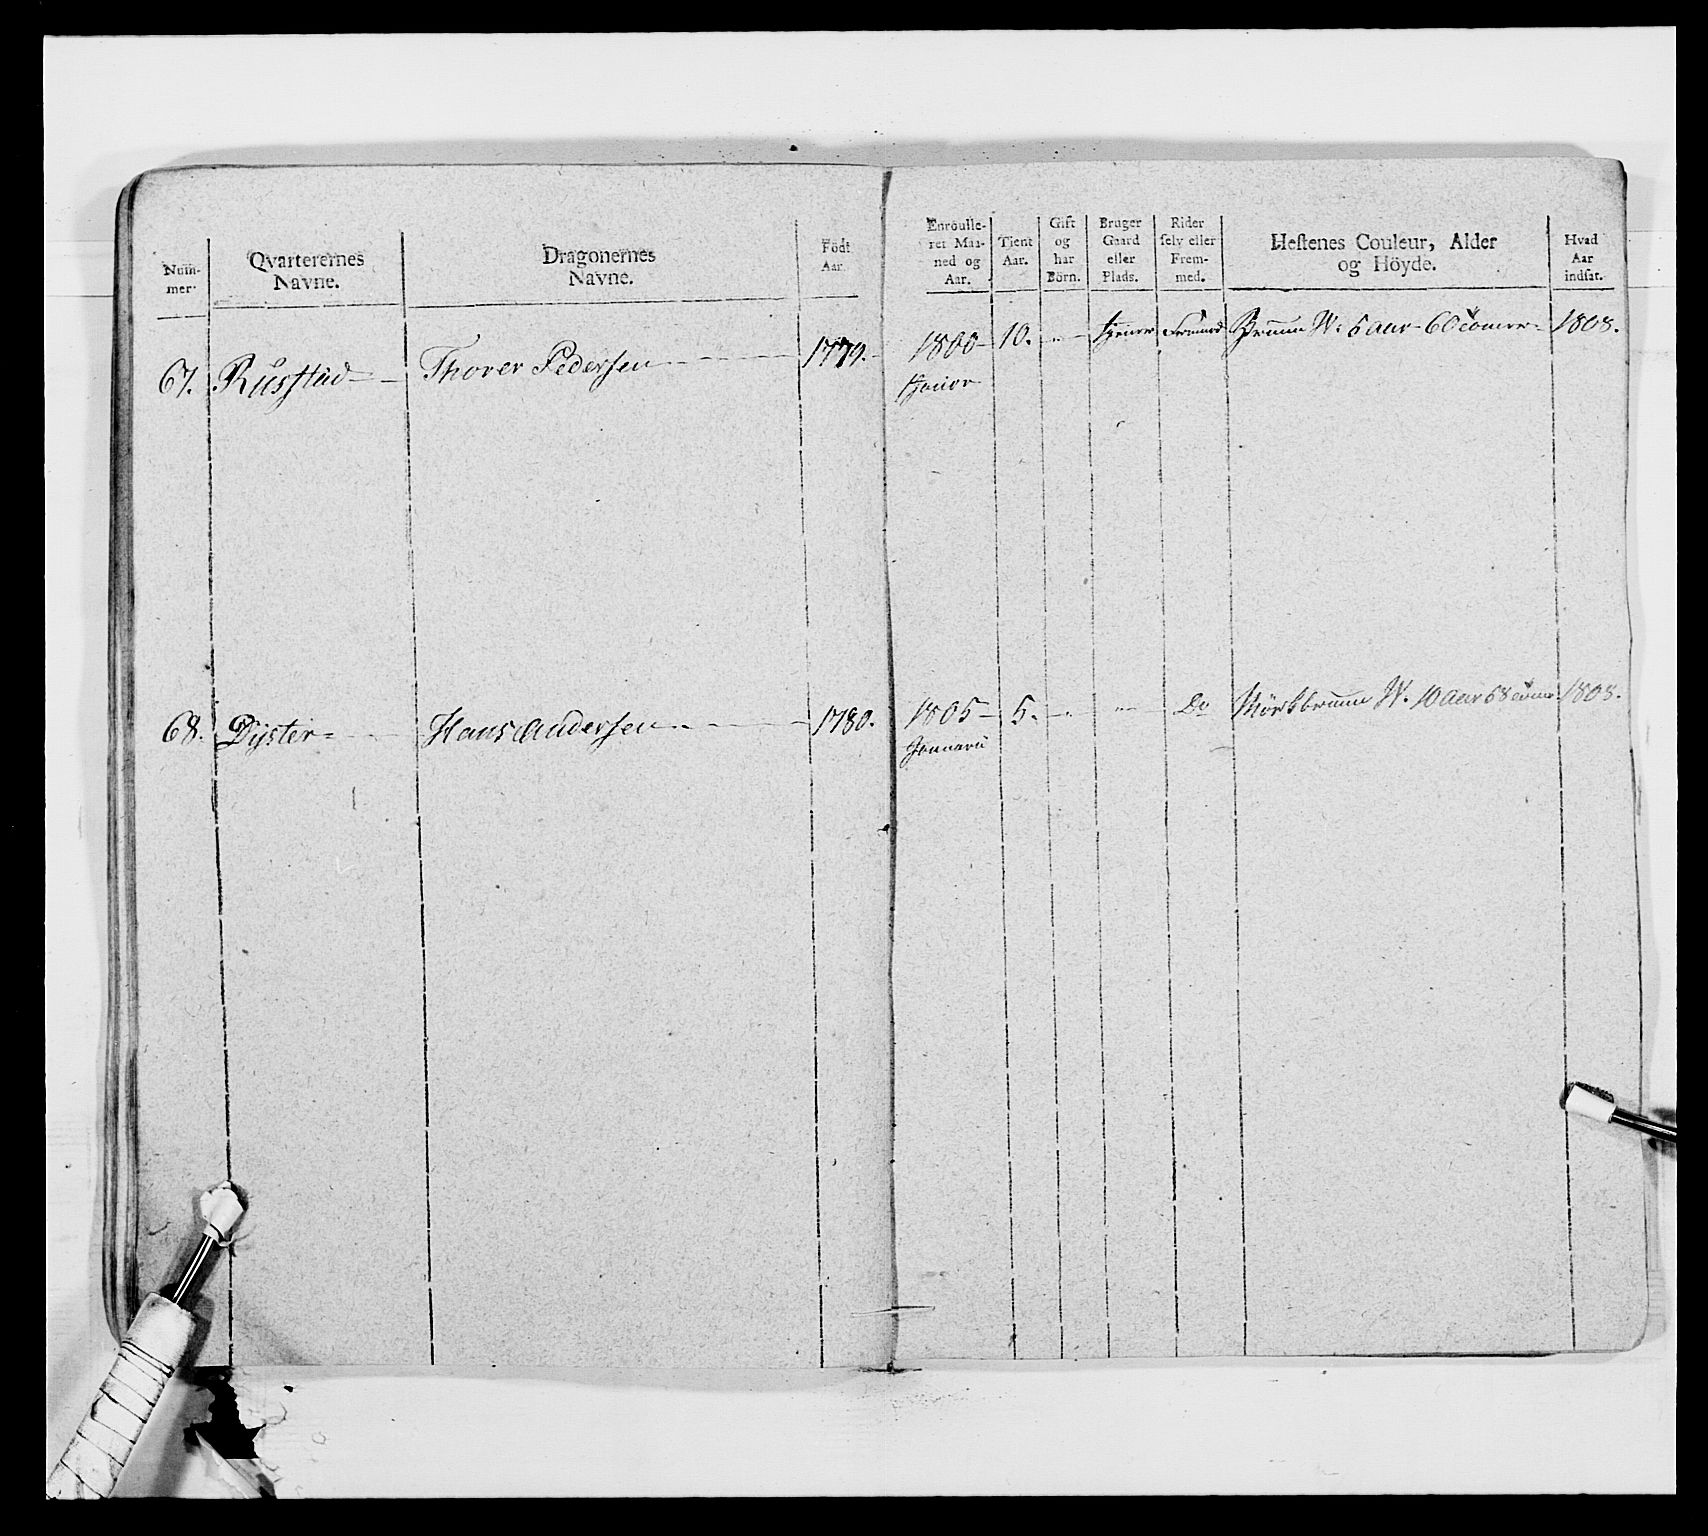 Num-
mer.
Qvarterernes
Navne.
Dragonernes
Navne.
Födt
Aar.
Enroulle-
ret Maa-
ned og
Aar.
Tient
Aar.
Gift
og
har
Börn.
Bruger
Gaard
eller
Plads.
Rider
selv eller
Frem-
med.
Hestenes Couleur, Alder
og Höyde.
Hvad
Aar
indsat.
67. Rustad Thover Pedersen 1779. 1800 10. " tjener Fremed Bruun W: 6 aar 60 tomer 1808.
68. Dyster Hans Andersen 1780. 1805 5. " " Do Mörkbruun W. 10 aar 58 tomer 1808.
Januarii